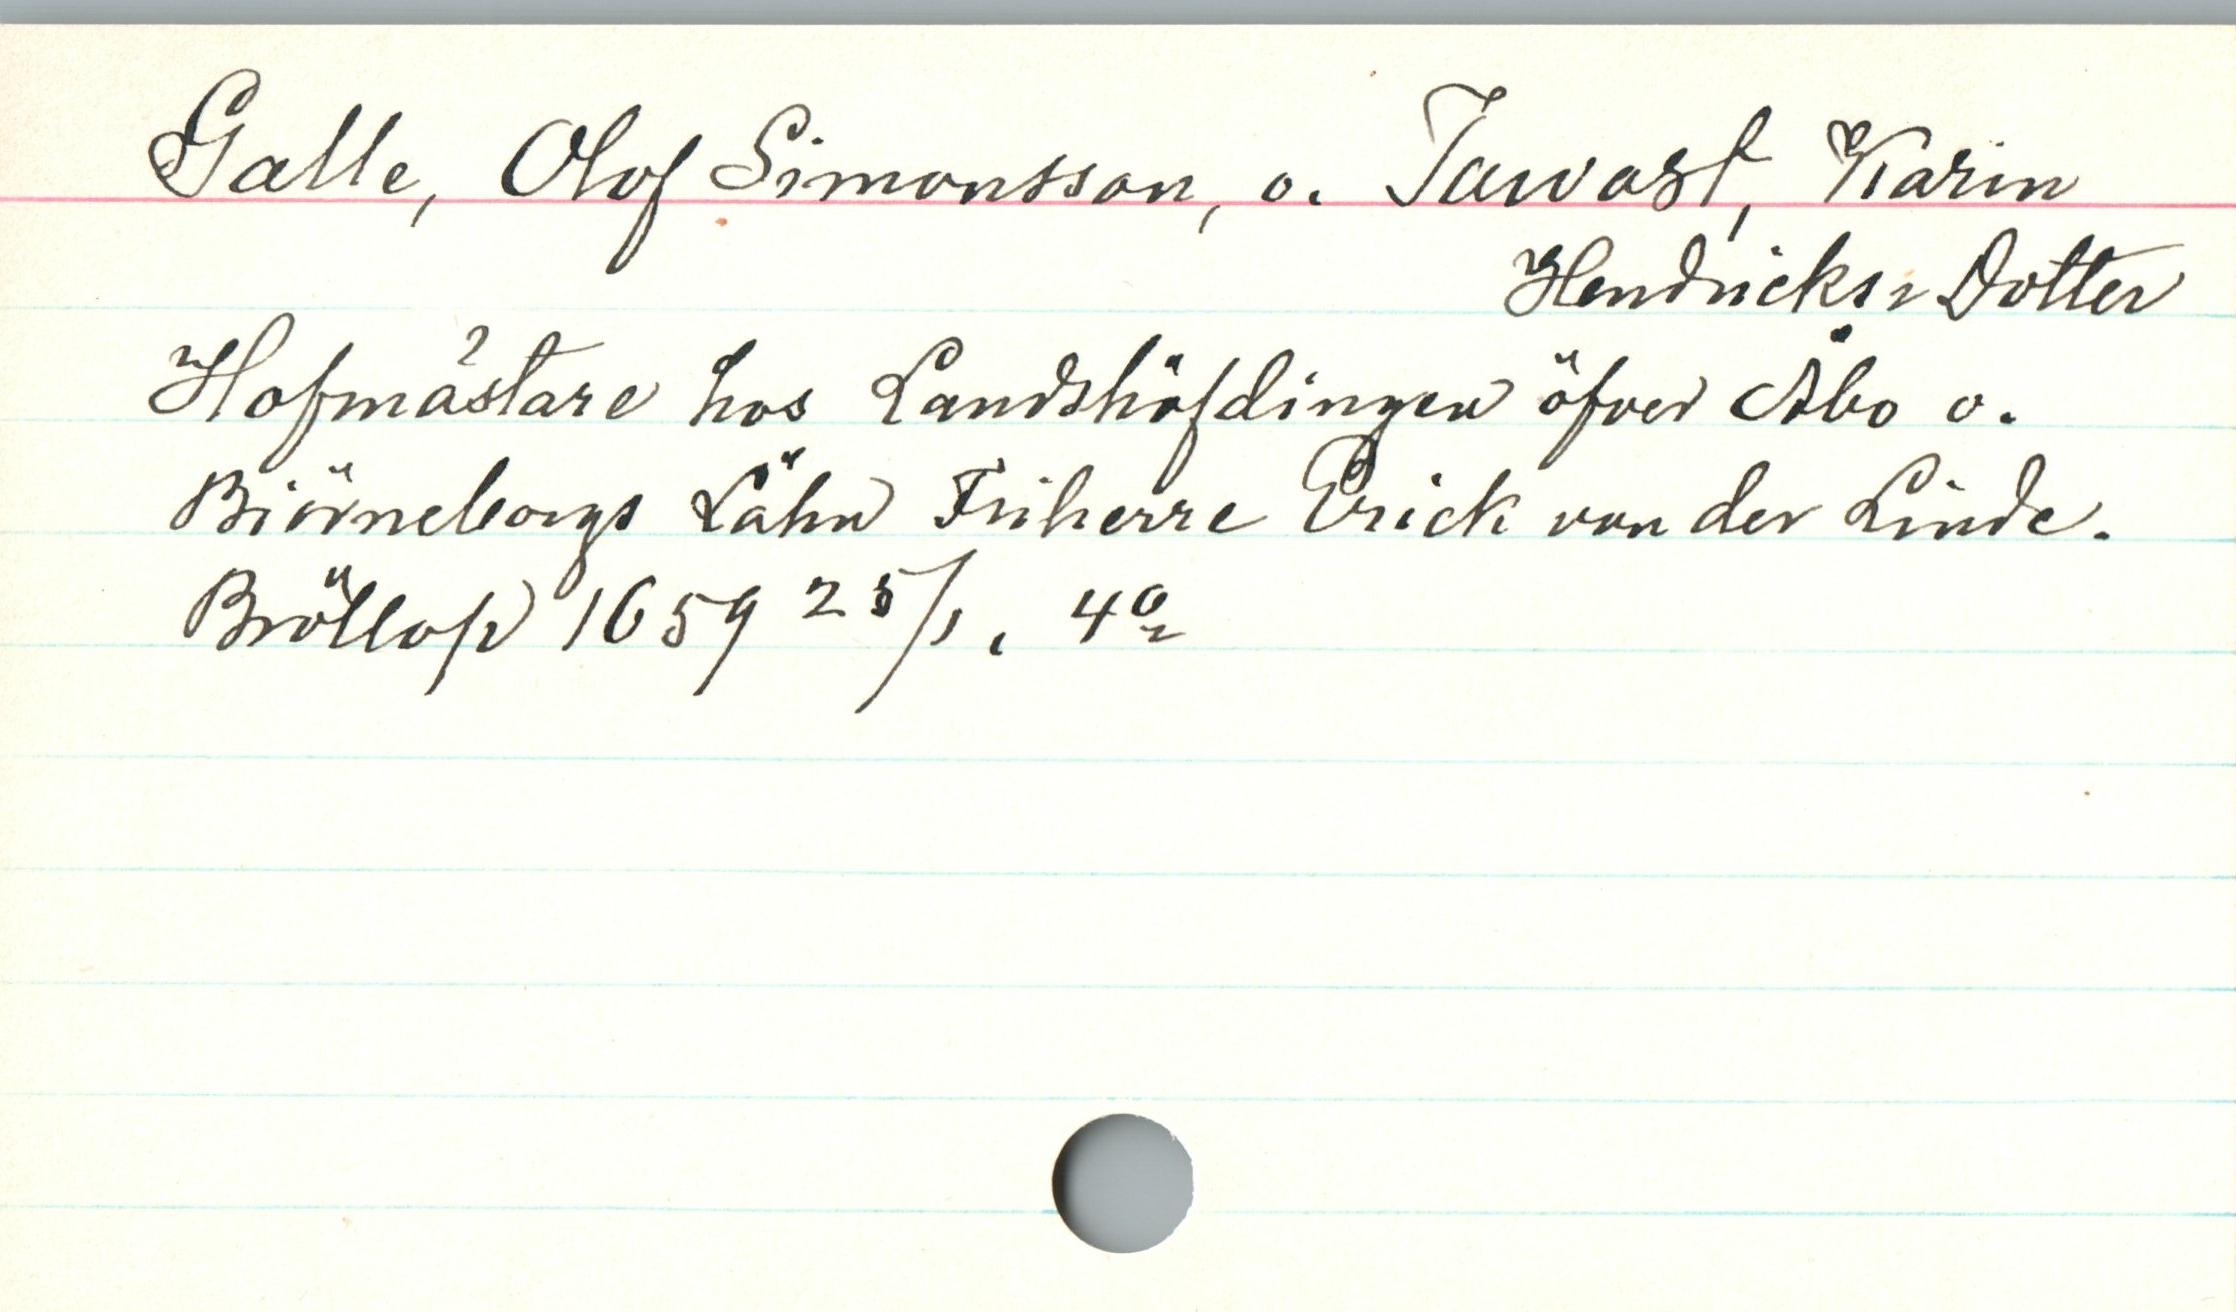 Galle, Olof Simonsson, o. Tawast, Karin
Hendricks-Dotter
Hofmästare hos Landshöfdingen öfver Åbo o.
Biörneborgs Lähn Friherre Erick von der Linde.
Bröllop 1659 25/1. 4o